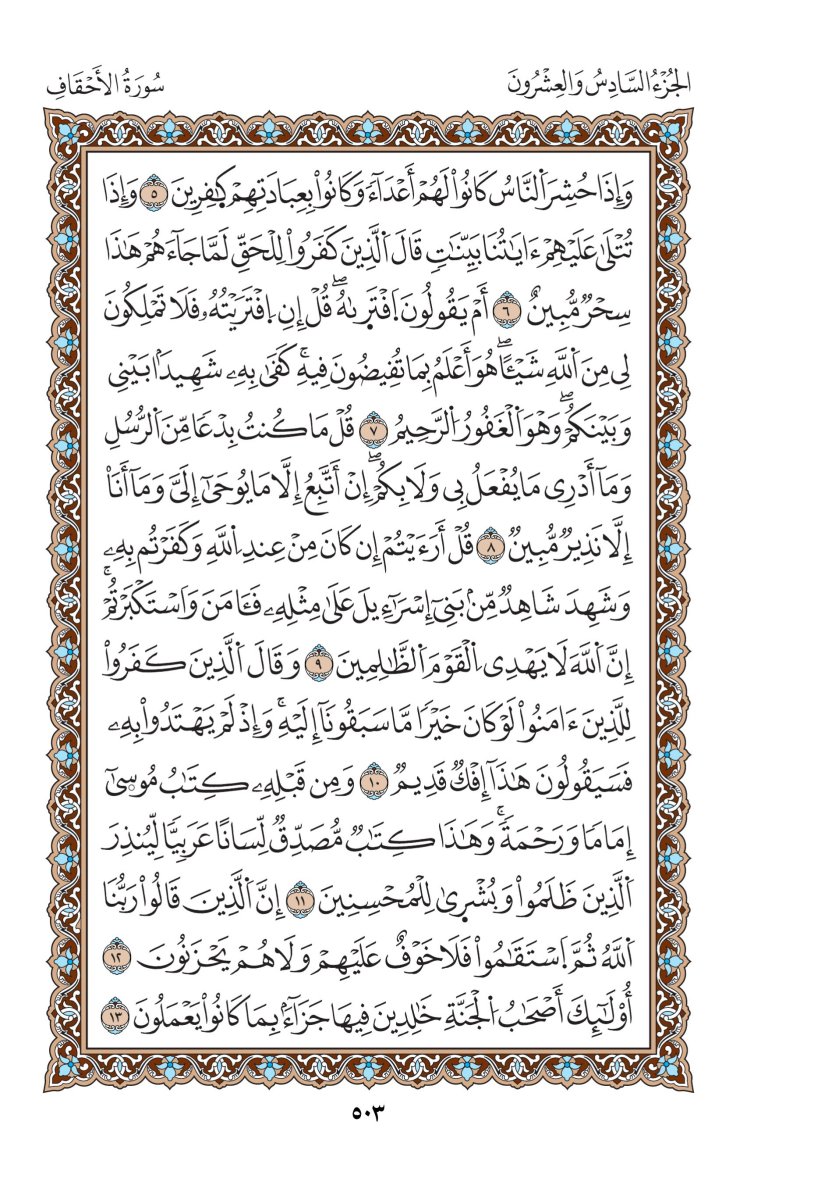 الجُزْءُ السَّادِسُ وَالعِشْرُونَ
سُورَةُ الأَحْقَافِ
وَإِذَا حُشِرَ اَ۬لنَّاسُ كَانُواْ لَهُمْ أَعْدَآءٗ وَكَانُواْ بِعِبَادَتِهِمْ كٜفِرِينَ ٥ وَإِذَا
تُتْلَىٰ عَلَيْهِمْ ءَايَٰتُنَا بَيِّنَٰتٖ قَالَ اَ۬لَّذِينَ كَفَرُواْ لِلْحَقِّ لَمَّا جَآءَهُمْ هَٰذَا
سِحْرٞ مُّبِينٌ ٦ أَمْ يَقُولُونَ اَ۪فْتَرٜىٰهُۖ قُلْ إِنِ اِ۪فْتَرَيْتُهُۥ فَلَا تَمْلِكُونَ
لِي مِنَ اَ۬للَّهِ شَيْـًٔاۖ هُوَ أَعْلَمُ بِمَا تُفِيضُونَ فِيهِۚ كَفَىٰ بِهِۦ شَهِيدَۢا بَيْنِي
وَبَيْنَكُمْۖ وَهْوَ اَ۬لْغَفُورُ اُ۬لرَّحِيمُ ٧ قُلْ مَا كُنتُ بِدْعٗا مِّنَ اَ۬لرُّسُلِ
وَمَآ أَدْرِي مَا يُفْعَلُ بِي وَلَا بِكُمْۖ إِنْ أَتَّبِعُ إِلَّا مَا يُوحَىٰٓ إِلَيَّ وَمَآ أَنَا۠
إِلَّا نَذِيرٞ مُّبِينٞ ٨ قُلْ أَرَءَيْتُمْ إِن كَانَ مِنْ عِندِ اِ۬للَّهِ وَكَفَرْتُم بِهِۦ
وَشَهِدَ شَاهِدٞ مِّنۢ بَنِيٓ إِسْرَآءِيلَ عَلَىٰ مِثْلِهِۦ فَـَٔامَنَ وَاَسْتَكْبَرْتُمْۚ
إِنَّ اَ۬للَّهَ لَا يَهْدِي اِ۬لْقَوْمَ اَ۬لظَّٰلِمِينَ ٩ وَقَالَ اَ۬لَّذِينَ كَفَرُواْ
لِلَّذِينَ ءَامَنُواْ لَوْ كَانَ خَيْرٗا مَّا سَبَقُونَآ إِلَيْهِۚ وَإِذْ لَمْ يَهْتَدُواْ بِهِۦ
فَسَيَقُولُونَ هَٰذَآ إِفْكٞ قَدِيمٞ ١٠ وَمِن قَبْلِهِۦ كِتَٰبُ مُوسۭىٰٓ
إِمَامٗا وَرَحْمَةٗۚ وَهَٰذَا كِتَٰبٞ مُّصَدِّقٞ لِّسَانًا عَرَبِيّٗا لِّيُنذِرَ
اَ۬لَّذِينَ ظَلَمُواْ وَبُشْرٜىٰ لِلْمُحْسِنِينَ ١١ إِنَّ اَ۬لَّذِينَ قَالُواْ رَبُّنَا
اَ۬للَّهُ ثُمَّ اَ۪سْتَقَٰمُواْ فَلَا خَوْفٌ عَلَيْهِمْ وَلَا هُمْ يَحْزَنُونَ ١٢
أُوْلَٰٓئِكَ أَصْحَٰبُ اُ۬لْجَنَّةِ خَٰلِدِينَ فِيهَا جَزَآءَۢ بِمَا كَانُواْ يَعْمَلُونَ ١٣
٥٠٣